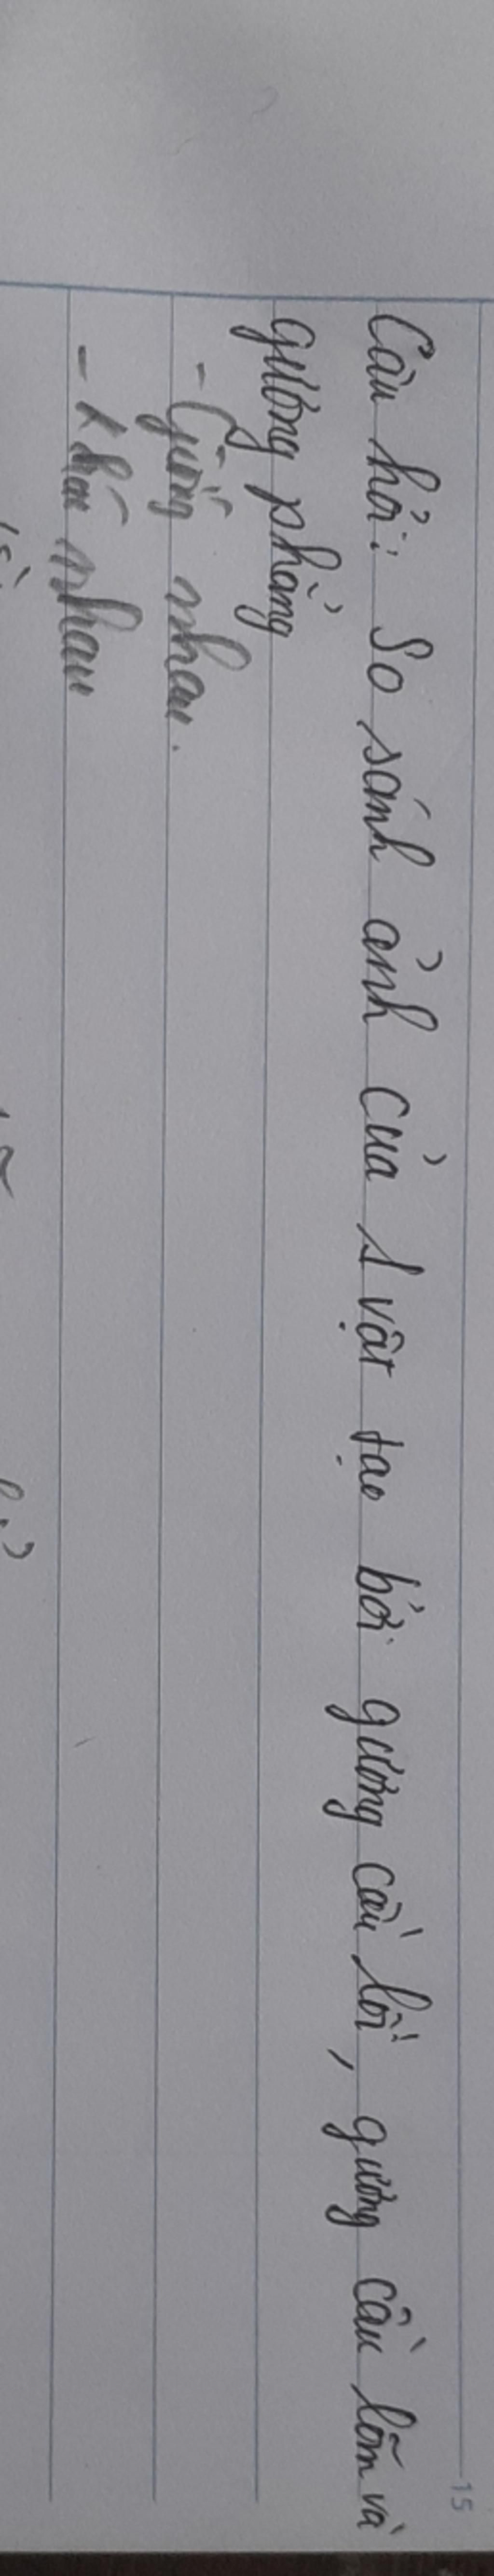 Câu hỏi: So sánh ảnh của 1 vật tạo bởi gương cầu lồi, gương cầu lõm và
gương phẳng
- Giống nhau.
- Khác nhau
15